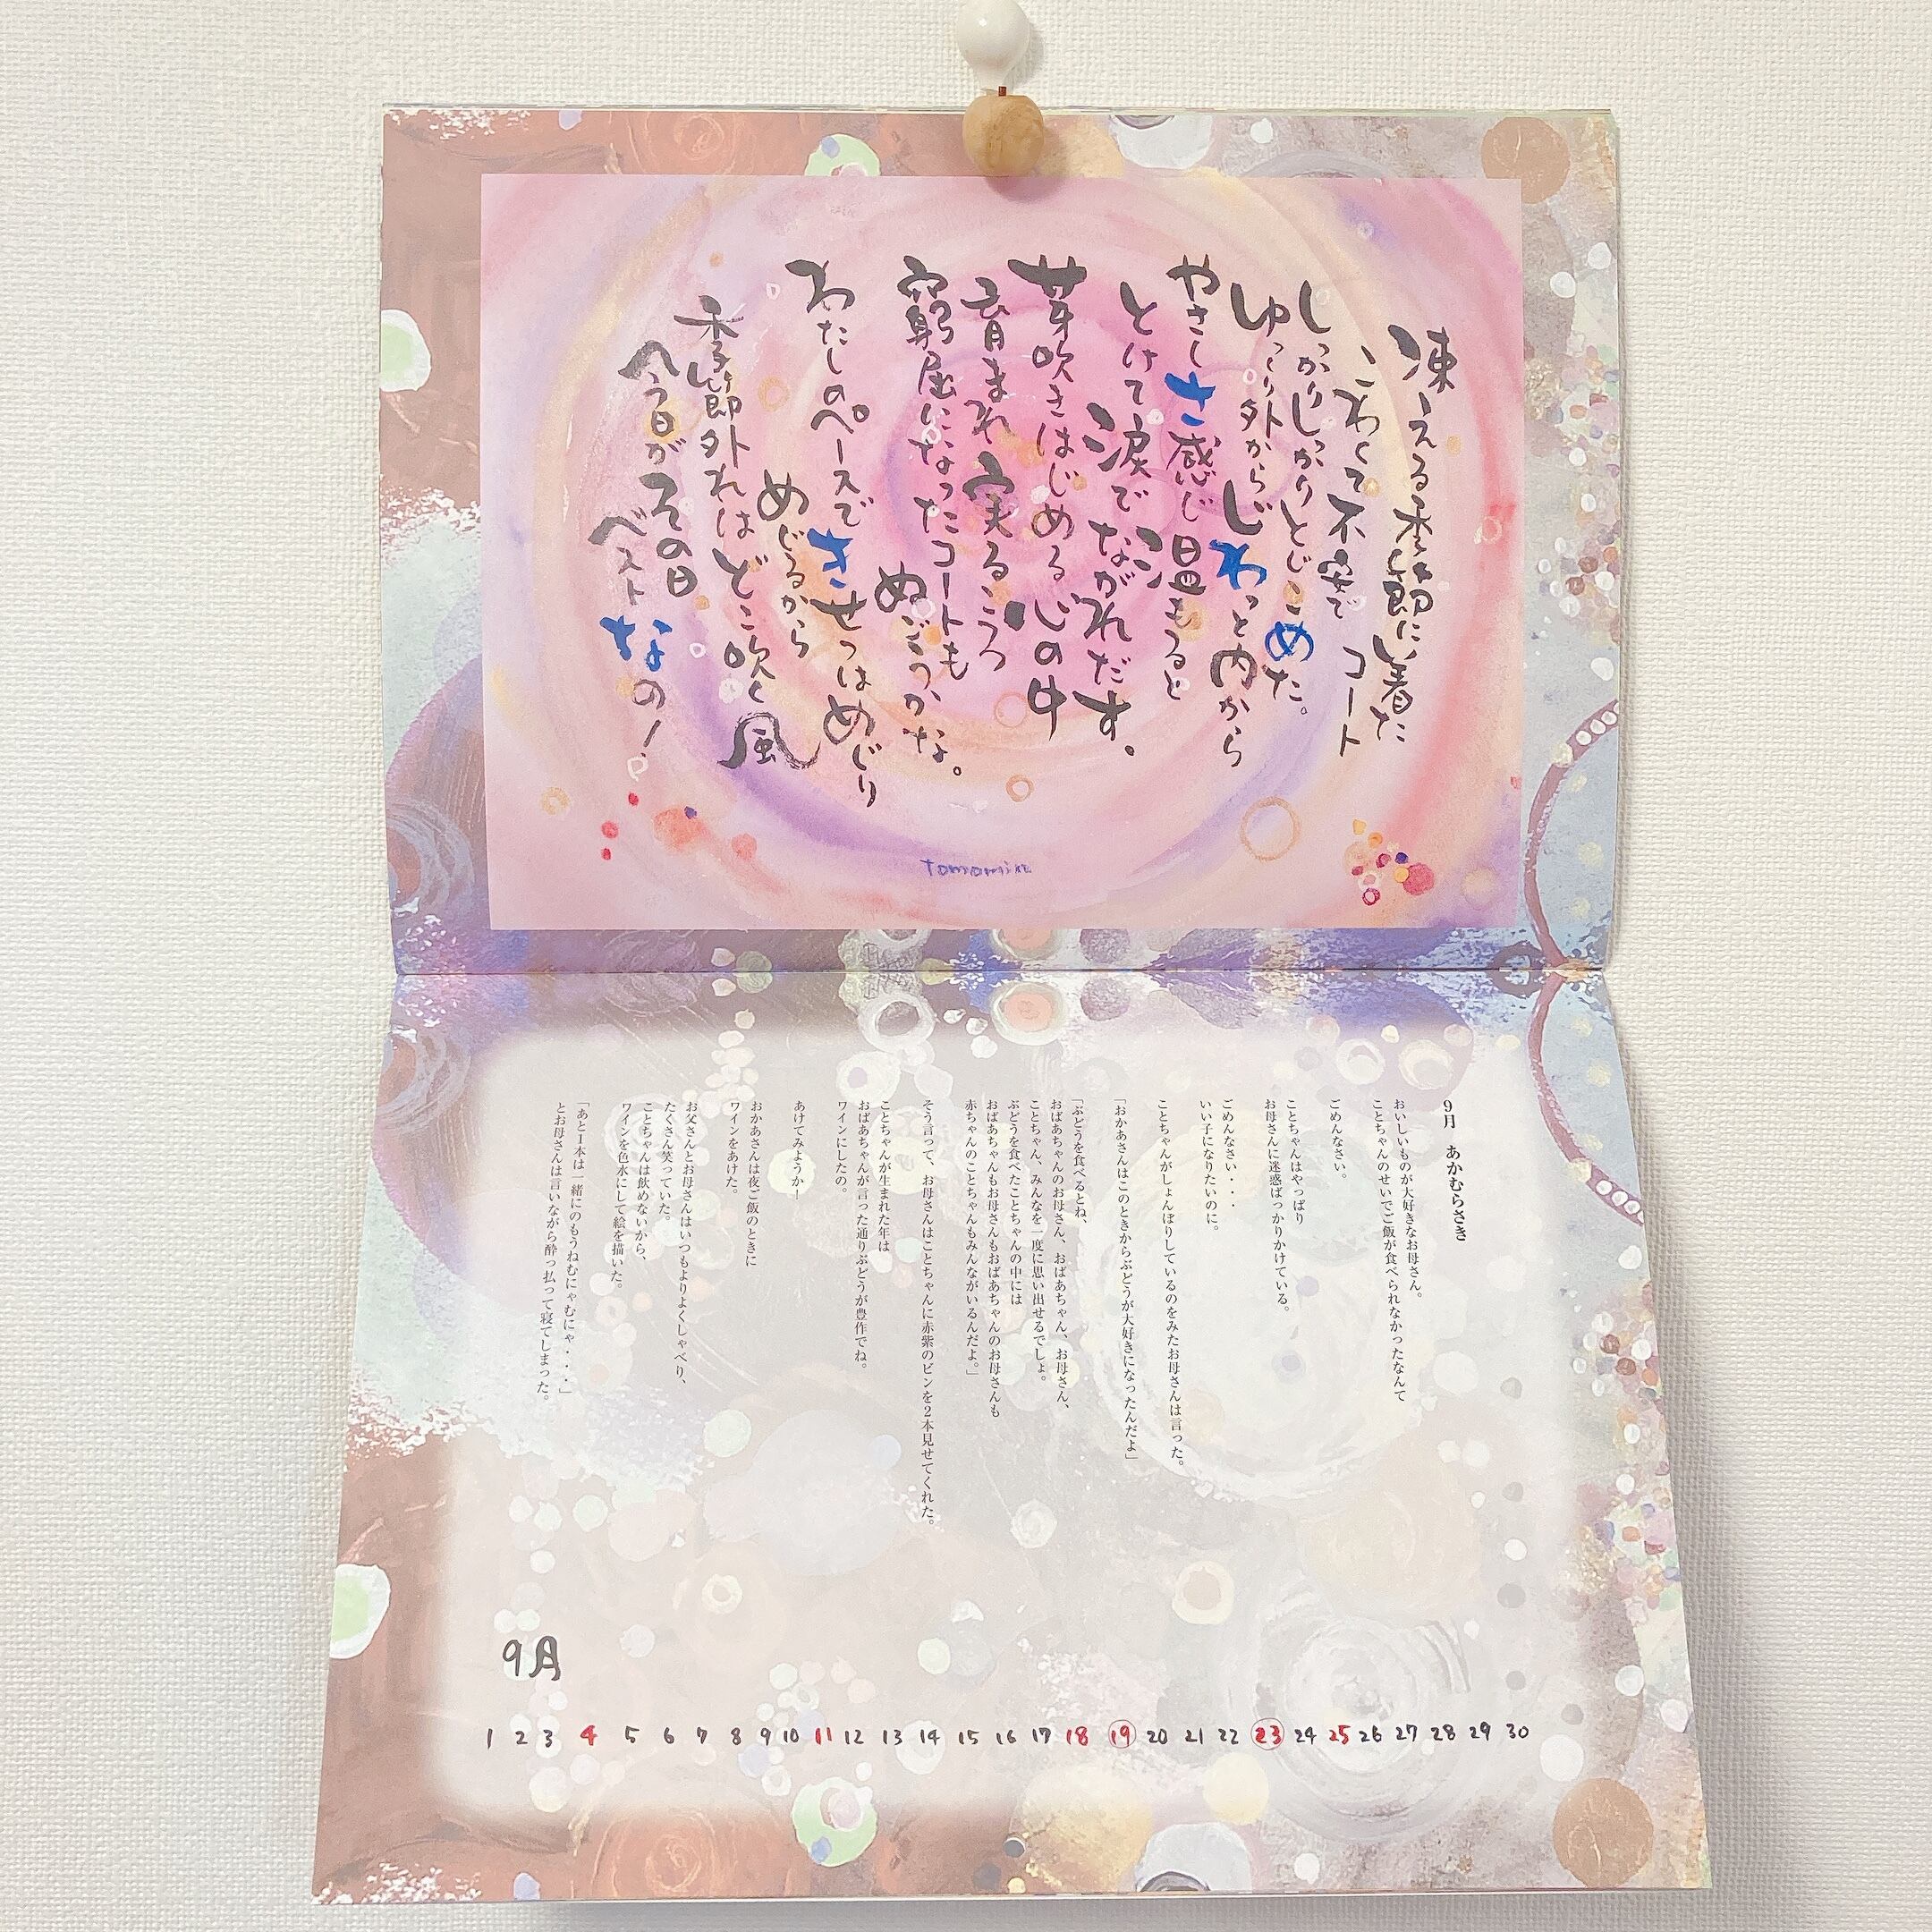 凍える季節に着た
こわくて不安で コート
しっかりしっかりとじこめた。
ゆっくり外からじわっと内から
やさしさ感じ温もると
とけて涙でながれだす。
芽吹きはじめる心の中
育まれ実るころ
窮屈になったコートも
ぬごうかな。
わたしのペースできせつはめぐり
めぐるから
季節外れはどこ吹く風
今日がその日
ベストなの!
9月 あかむらさき
おいしいものが大好きなお母さん。
ことちゃんのせいでご飯が食べられなかったなんて
ごめんなさい。
ことちゃんはやっぱり
お母さんに迷惑ばっかりかけている。
ごめんなさい・・・
いい子になりたいのに。
ことちゃんがしょんぼりしているのをみたお母さんは言った。
「おかあさんはこのときからぶどうが大好きになったんだよ」
「ぶどうを食べるとね、
おばあちゃんのお母さん、おばあちゃん、お母さん、
ことちゃん、みんなを一度に思い出せるでしょ。
ぶどうを食べたことちゃんの中には
おばあちゃんもお母さんもおばあちゃんのお母さんも
赤ちゃんのことちゃんもみんながいるんだよ。」
そう言って、お母さんはことちゃんに赤紫のビンを2本見せてくれた。
ことちゃんが生まれた年は
おばあちゃんが言った通りぶどうが豊作でね。
ワインにしたの。
あけてみようか!
おかあさんは夜ご飯のときに
ワインをあけた。
お父さんとお母さんはいつもよりよくしゃべり、
たくさん笑っていた。
ことちゃんは飲めないから、
ワインを色水にして絵を描いた。
「あと1本は一緒にのもうねむにゃむにゃ・・・」
とお母さんは言いながら酔っ払って寝てしまった。
9月
1 2 3 4 5 6 7 8 9 10 11 12 13 14 15 16 17 18 19 20 21 22 23 24 25 26 27 28 29 30